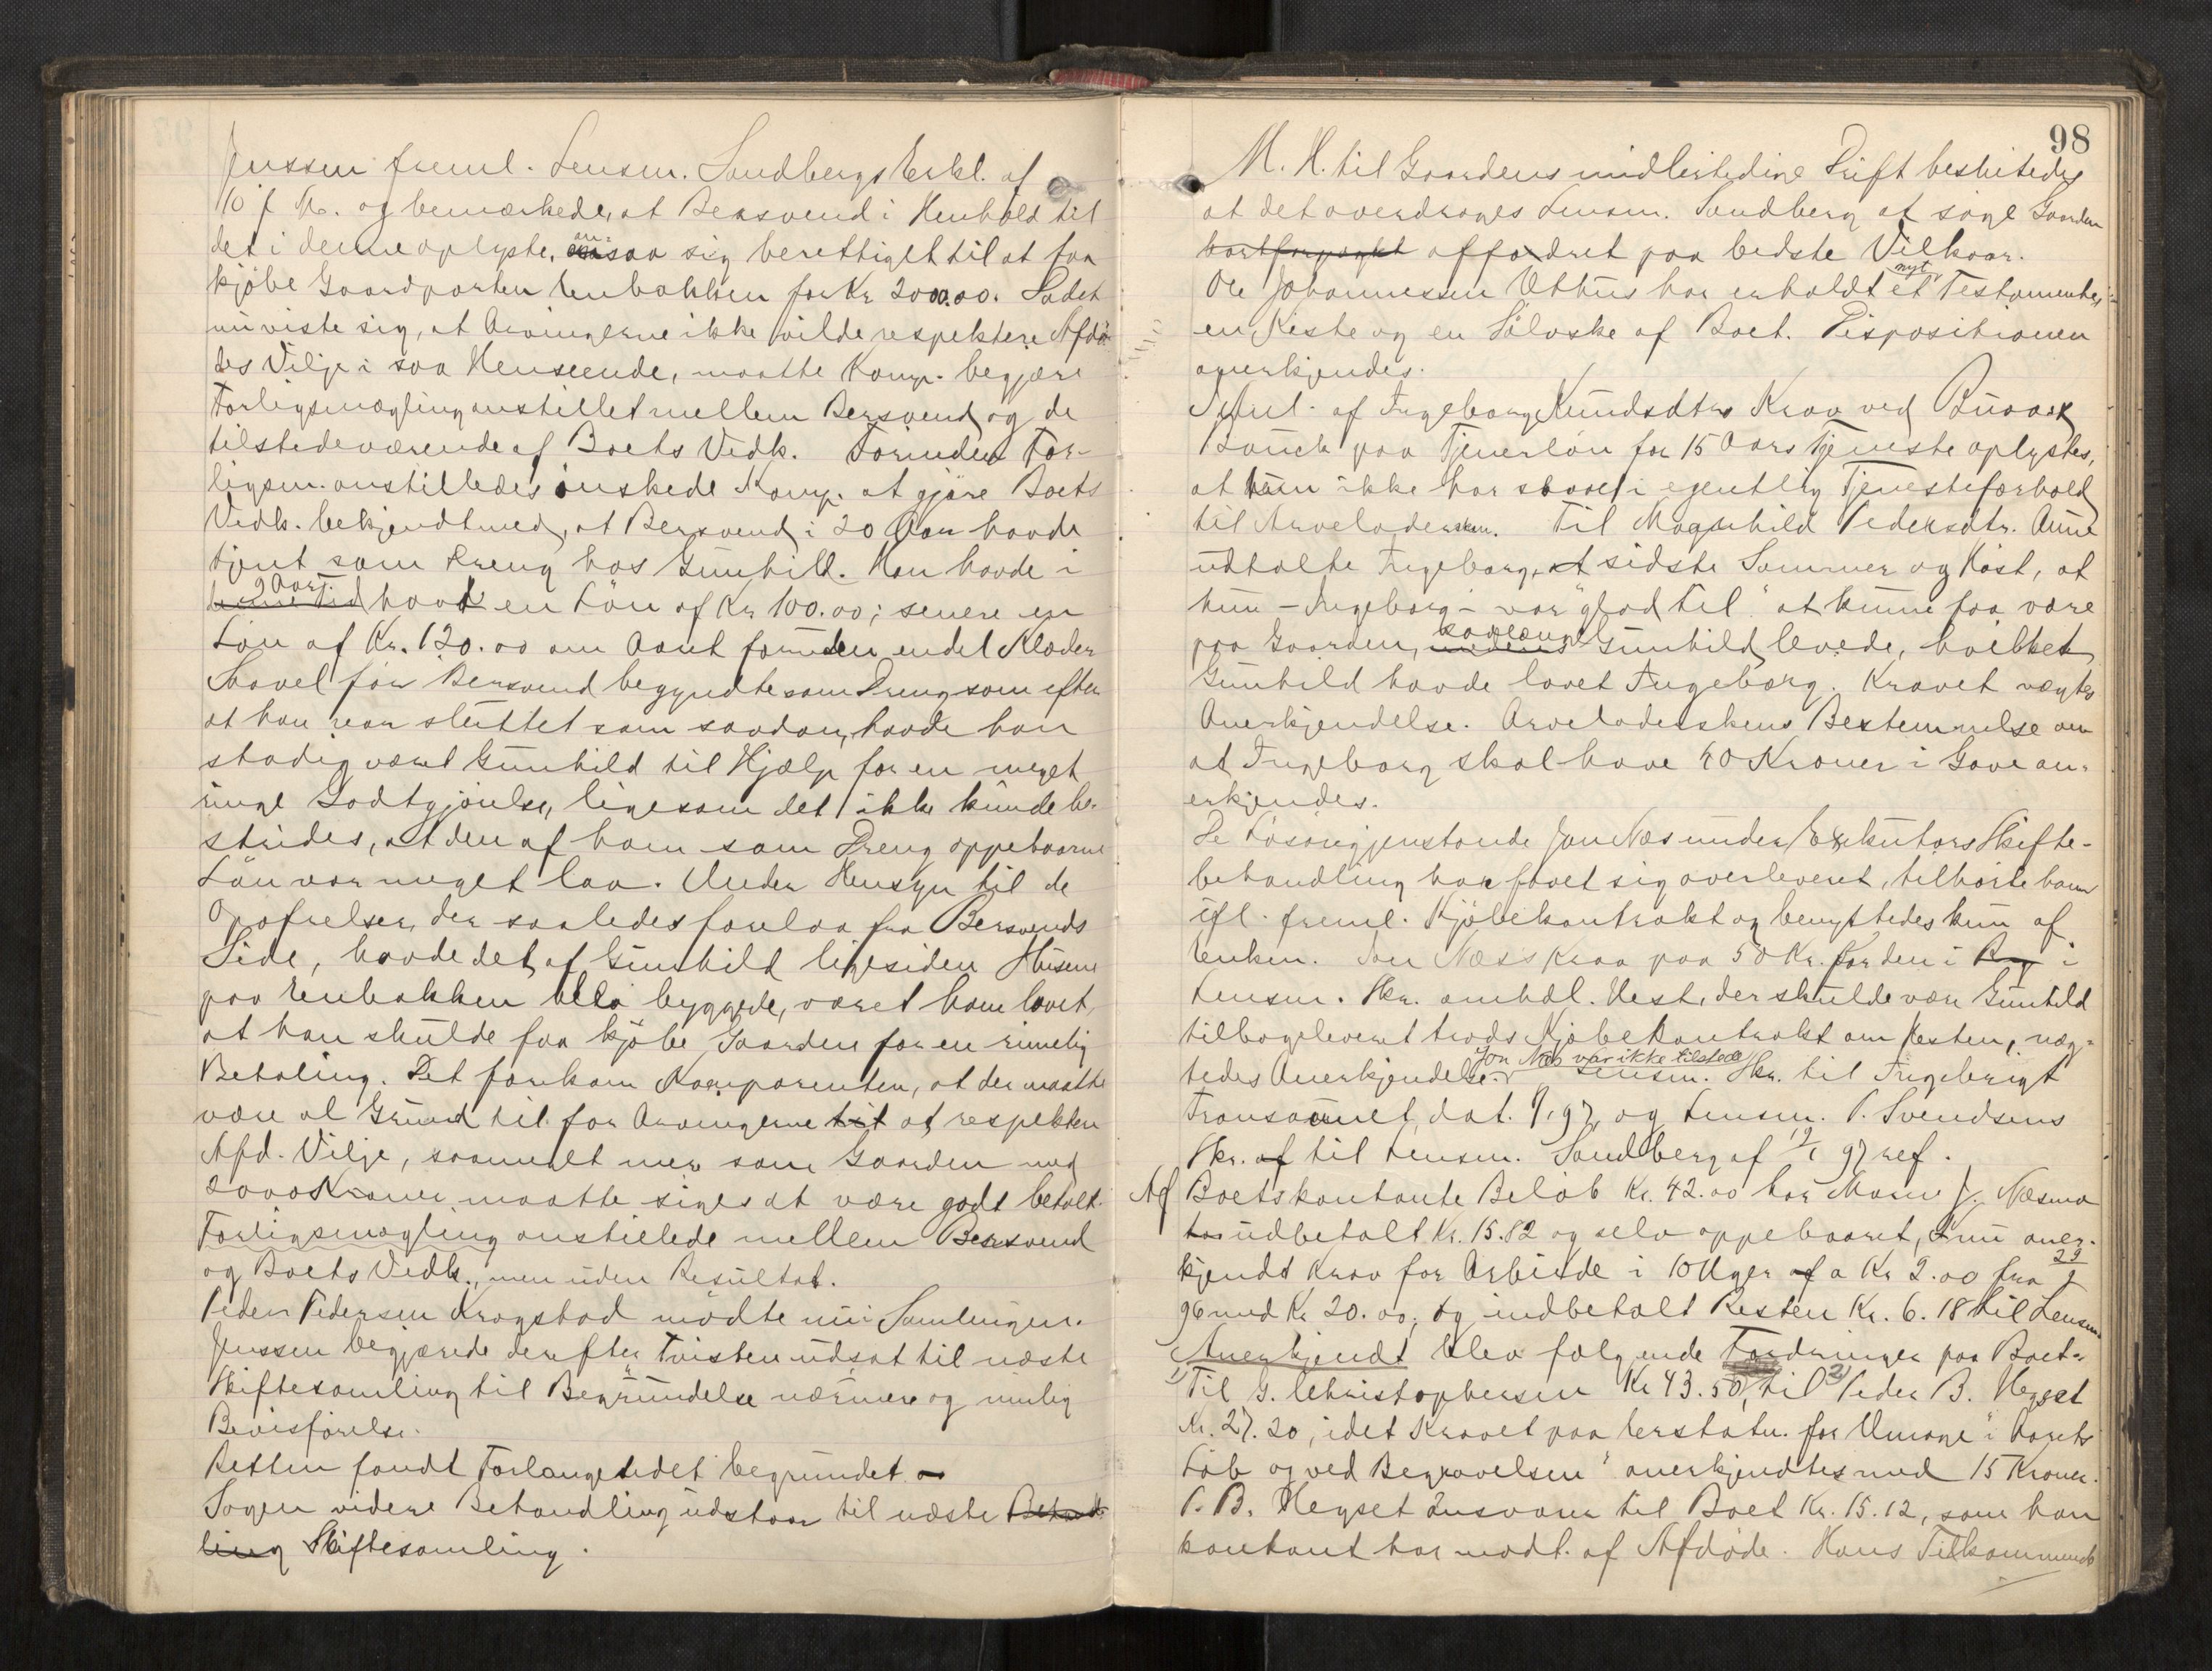 Jenssen freml. Lensm. Sandbergs Erkl. af
10 f. M. og bemærkede, at Bersvend i Henhold til
det i denne oplyste, ansaa sig berettiget til at faa
kjøbe Gaardparten Enbakken for Kr 2000.00. Da det
nu viste sig, at Arvingerne ikke vilde respektere Afdø-
des Vilje i saa Henseende, maatte Komp. begjære
Forligsmægling anstillet mellem Bersvend og de
tilstedeværende af Boets Vedk. Forinden For-
ligsm. anstilledes ønskede Komp. at gjøre Boets
Vedk. bekjendt med, at Bersvend i 20 Aar havde
tjent som Dreng hos Gunhild. Han havde i
2 Aar havt en Løn af Kr 100.00; senere en
Løn af Kr. 120.00 om Aaret foruden endel Klæder
Saavel før Bersvend begyndte som Dreng som efter
at han var sluttet som saadan, havde han
stadig været Gunhild til Hjælp for en meget
ringe Godtgjørelse, ligesom det ikke kunde be-
strides, at den af ham som Dreng oppebaarne
Løn var meget lav. Under Hensyn til de
Opofrelser, der saaledes forelaa fra Bersvends
Side, havde det af Gunhild ligesiden Husene
paa Enbakken blev byggede, været ham lovet,
at han skulde faa kjøbe Gaarden for en rimelig
Betaling. Det forekom Komparenten, at der maatte
være al Grund til for Arvingerne til at respektere
Afd. Vilje, saameget mer som Gaarden med
2000 Kroner maatte siges at være godt betalt.
Forligsmægling anstillede mellem Bersvend
og Boets Vedk., men uden Resultat.
Peder Pedersen Krogstad mødte nu i Samlingen.
Jenssen begjærede derefter Tvisten udsat til næste
Skiftesamling til Begrundelse nærmere og mulig
Bevisførelse.
Retten fandt Forlangetidet begrundet
Sagen videre Behandling udstaar til næste Behand-
ling Skiftesamling.
98
M. H. til Gaardens midlertidige Drift besluttedes
at det overdrages Lensm. Sandberg at søge Gaarden
bortforpagtet affordret paa bedste Vilkaar.
Ole Johannessen Uthus har erholdt et nyt Testamente,
en Kiste og en Sølvske af Boet. Dispositionen
anerkjendes.
af Ingeborg Knudsdtrs Krav ved
Bauck paa Tjenerløn for 15 Aars Tjeneste oplystes,
at hun ikke har staaet i egentlig Tjenesteforhold
til Arveladersken. Til Magnhild Pedersdtr. Aune
udtalte Ingeborg, at sidste Sommer og Høst, at
hun - Ingeborg - var "glad til" at kunne faa være
paa Gaarden, saalænge Gunhild levede, hvilket
Gunhild havde lovet Ingeborg. Kravet nægtes
Anerkjendelse. Arveladerskens Bestemmelse om
at Ingeborg skal have 40 Kroner i Gave an-
erkjendes.
De Løsøregjenstande Jon Næs under Exekutors Skifte-
behandling har faaet sig overleveret, tilhørte ham
ifl. freml. Kjøbekontrakt og benyttedes kun af
Enken. Jon Næss Krav paa 50 Kr. for den i
Lensm. Skr. omhdl. Hest, der skulde være Gunhild
tilbageleveret trods Kjøbekontrakt om Hesten, næg-
tedes Anerkjendelse. Jon Næs var ikke tilstede. Lensm. Skr. til Ingebrigt
Fransaunet, dat. 9/1 97, og Lensm. P. Svendsens
Skr. af til Lensm. Sandberg af 12/1 97 ref.
Af Boets kontante Beløb Kr. 42.00 har Maren J. Næsmo
har udbetalt Kr. 15.82 og selv oppebaaret, nu aner-
kjendt Krav for Arbeide i 10 Uger af a Kr 2.00 fra
96 med Kr 20.00, og indbetalt Resten Kr. 6.18 til Lensm.
Anerkjendt blev følgende Fordringer paa Boet:
1) Til G. Christophersen Kr 43.50, 2) til Peder B. Hegset
Kr. 27.20, idet Kravet paa Erstatn. for Umage "i Aarets
Løb og ved Begravelsen" anerkjendtes med 15 Kroner.
P. B. Hegset ansvarer til Boet Kr. 15.12, som han
kontant har modt. af Afdøde. Hans Tilkommende